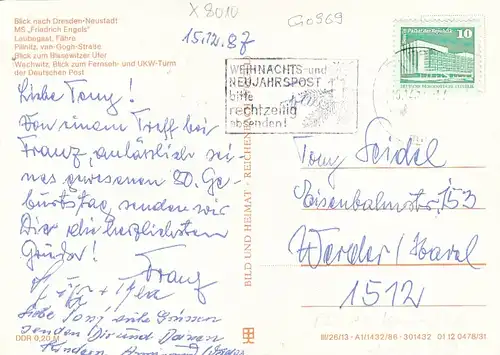 Blick nach Dresden-Neustadt
MS „Friedrich Engels“
Laubegast, Fähre
Pillnitz, van-Gogh-Straße
Blick zum Blasewitzer Ufer
Wachwitz, Blick zum Fernseh- und UKW-Turm
der Deutschen Post
X 8010
G0969
15.12.87
WEIHNACHTS- und
NEUJAHRSPOST
bitte
rechtzeitig
absenden!
10
Liebe Tony!
Von einem Treff bei
Franz, anlässlich sei-
nes gewesenen 80. Ge-
burtstag, senden wir
Dir die herzlichsten
Grüße!
Franz
Liebe Tony! Gute Grüsse
senden Dir und Deinen
Kindern
DDR 0,20 M
BILD UND HEIMAT · REICHENB
Tony Seidel
Eisenbahnstr. 153
Werder/Havel
1512
III/26/13 · A1/1432/86 · 301432 01 12 0478/31